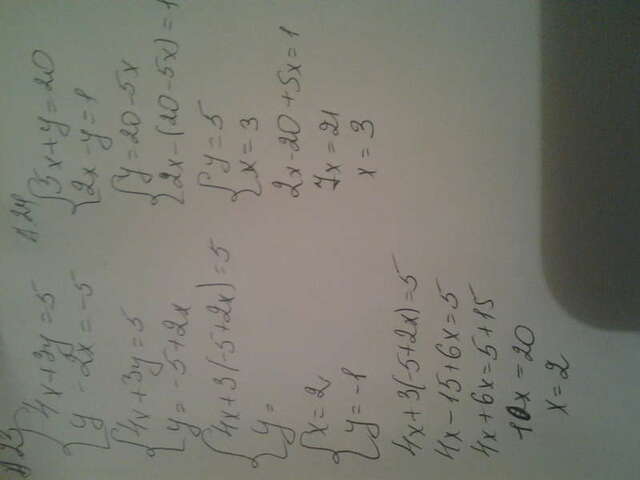 А 23
{4x+3y=5
{y-2x=-5
{4x+3y=5
{y=-5+2x
{4x+3(-5+2x)=5
{y=
{x=2
{y=-1
4x+3(-5+2x)=5
4x-15+6x=5
4x+6x=5+15
10x=20
x=2
А 24
{5x+y=20
{2x-y=1
{y=20-5x
{2x-(20-5x)=1
{y=5
{x=3
2x-20+5x=1
7x=21
x=3